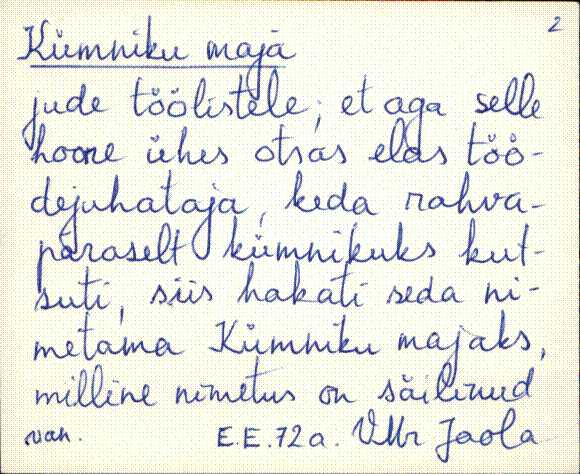 2
Kümniku maja
jude töölistele, et aga selle
hoone ühes otsas elas töö-
dejuhataja, keda rahva-
päraselt kümnikuks kut-
suti, siis hakati seda ni-
metama Kümniku majaks,
milline nimetus on säilinud
E.E. 72 a. Jaola